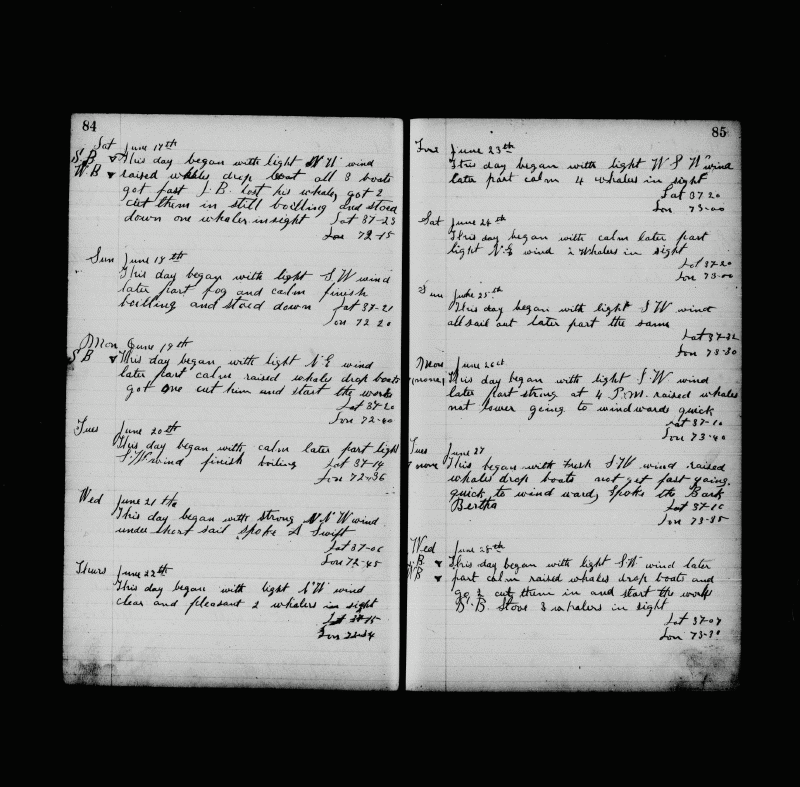 84
Sat June 17th
S.B This day began with light N W wind
W.B raised whales drop boat all 3 boats
got fast S.B. lost his whale, got 2
cut them in still boilling and stoed
down one whaler insight Lat 37-23
Lon 72-15
Sun June 18th
This day began with light S W wind
later part fog and calm finish
boilling and stoed down Lat 37-21
Lon 72 20
Mon June 19th
S B This day began with light N.E wind
later part calm raised whales drop boats
got one cut him and start the works
Lat 37-20
Lon 72-40
Tues June 20th
This day began with calm later part light
S.W. wind finish boiling Lat 37-14
Lon 72-36
Wed June 21th
This day began with strong N.N.W wind
under short sail spoke A Swift
Lat 37-06
Lon 72-45
Thurs June 22th
This day began with light wind
clear and pleasant 2 whalers in sight
Lat
Lon
85
June 23th
This day began with light W S W wind
later part calm 4 whalers in sight
Lat 37 20
Lon 73-00
Sat June 24th
This day began with calm later part
light N.E wind 2 whalers in sight
Lat 37-20
Lon 73-00
Sun June 25th
This day began with light S W wind
all sail out later part the same
Lat
Lon 73-30
Mon June 26
(none) This day began with light S.W. wind
later part strong at 4 P.M. raised whales
not lower going to windwards quick
Lat 37-10
Lon 73-40
Tues June 27
non This began with fresh S W wind raised
whales drop boats not get fast going
quick to wind ward, Spoke the Bark
Bertha Lat 37-10
Lon 73-35
Wed June 28th
B This day began with light SW wind later
B part calm raised whales drop boats and
go 2 cut them in and start the works
B. Stove 3 whalers in sight
Lat 37-07
Lon